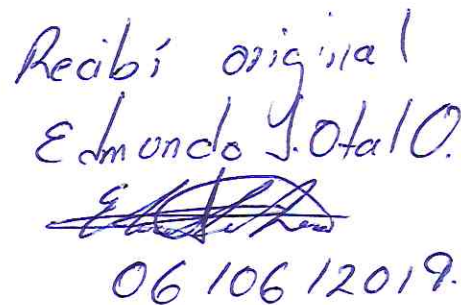 Recibí original
Edmundo J. Otal O.
06/06/2019.